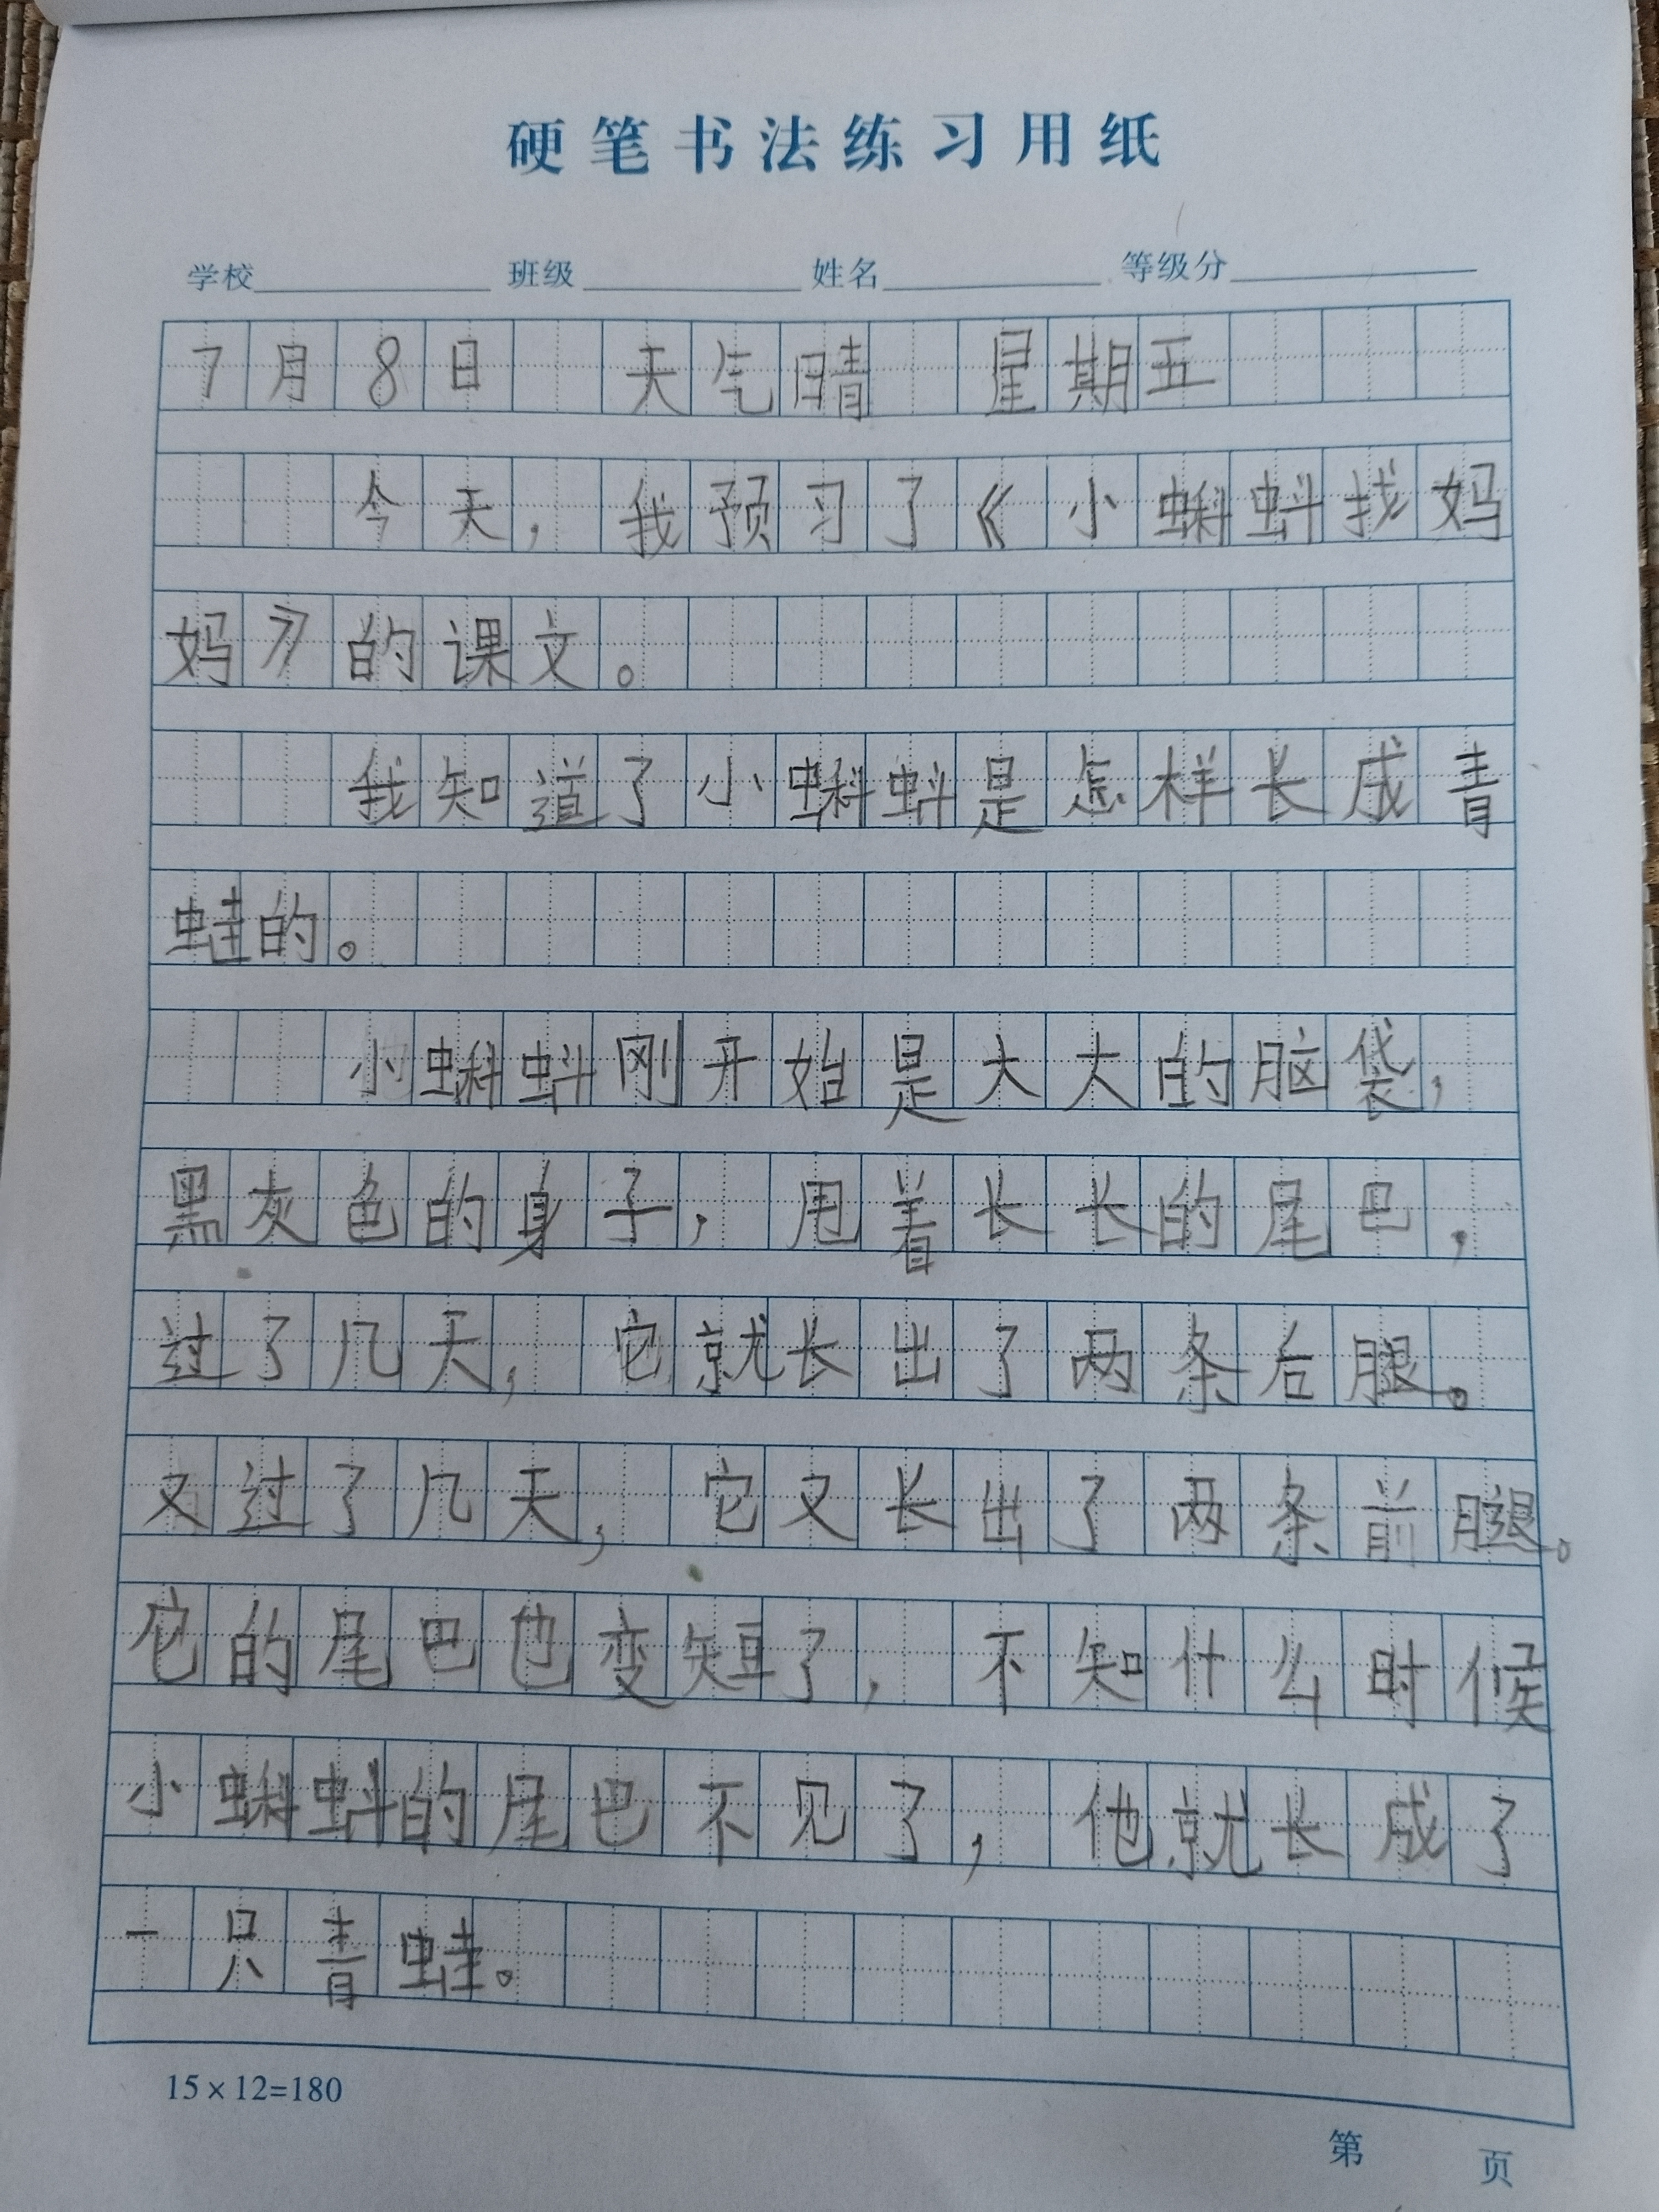 硬笔书法练习用纸
学校 班级 姓名 等级分
7月8日 天气晴 星期五
今天，我预习了《小蝌蚪找妈
妈》的课文。
我知道了小蝌蚪是怎样长成青
蛙的。
小蝌蚪刚开始是大大的脑袋，
黑灰色的身子，甩着长长的尾巴，
过了几天，它就长出了两条后腿。
又过了几天，它又长出了两条前腿。
它的尾巴也变短了，不知什么时候
小蝌蚪的尾巴不见了，他就长成了
一只青蛙。
15×12=180
第 页